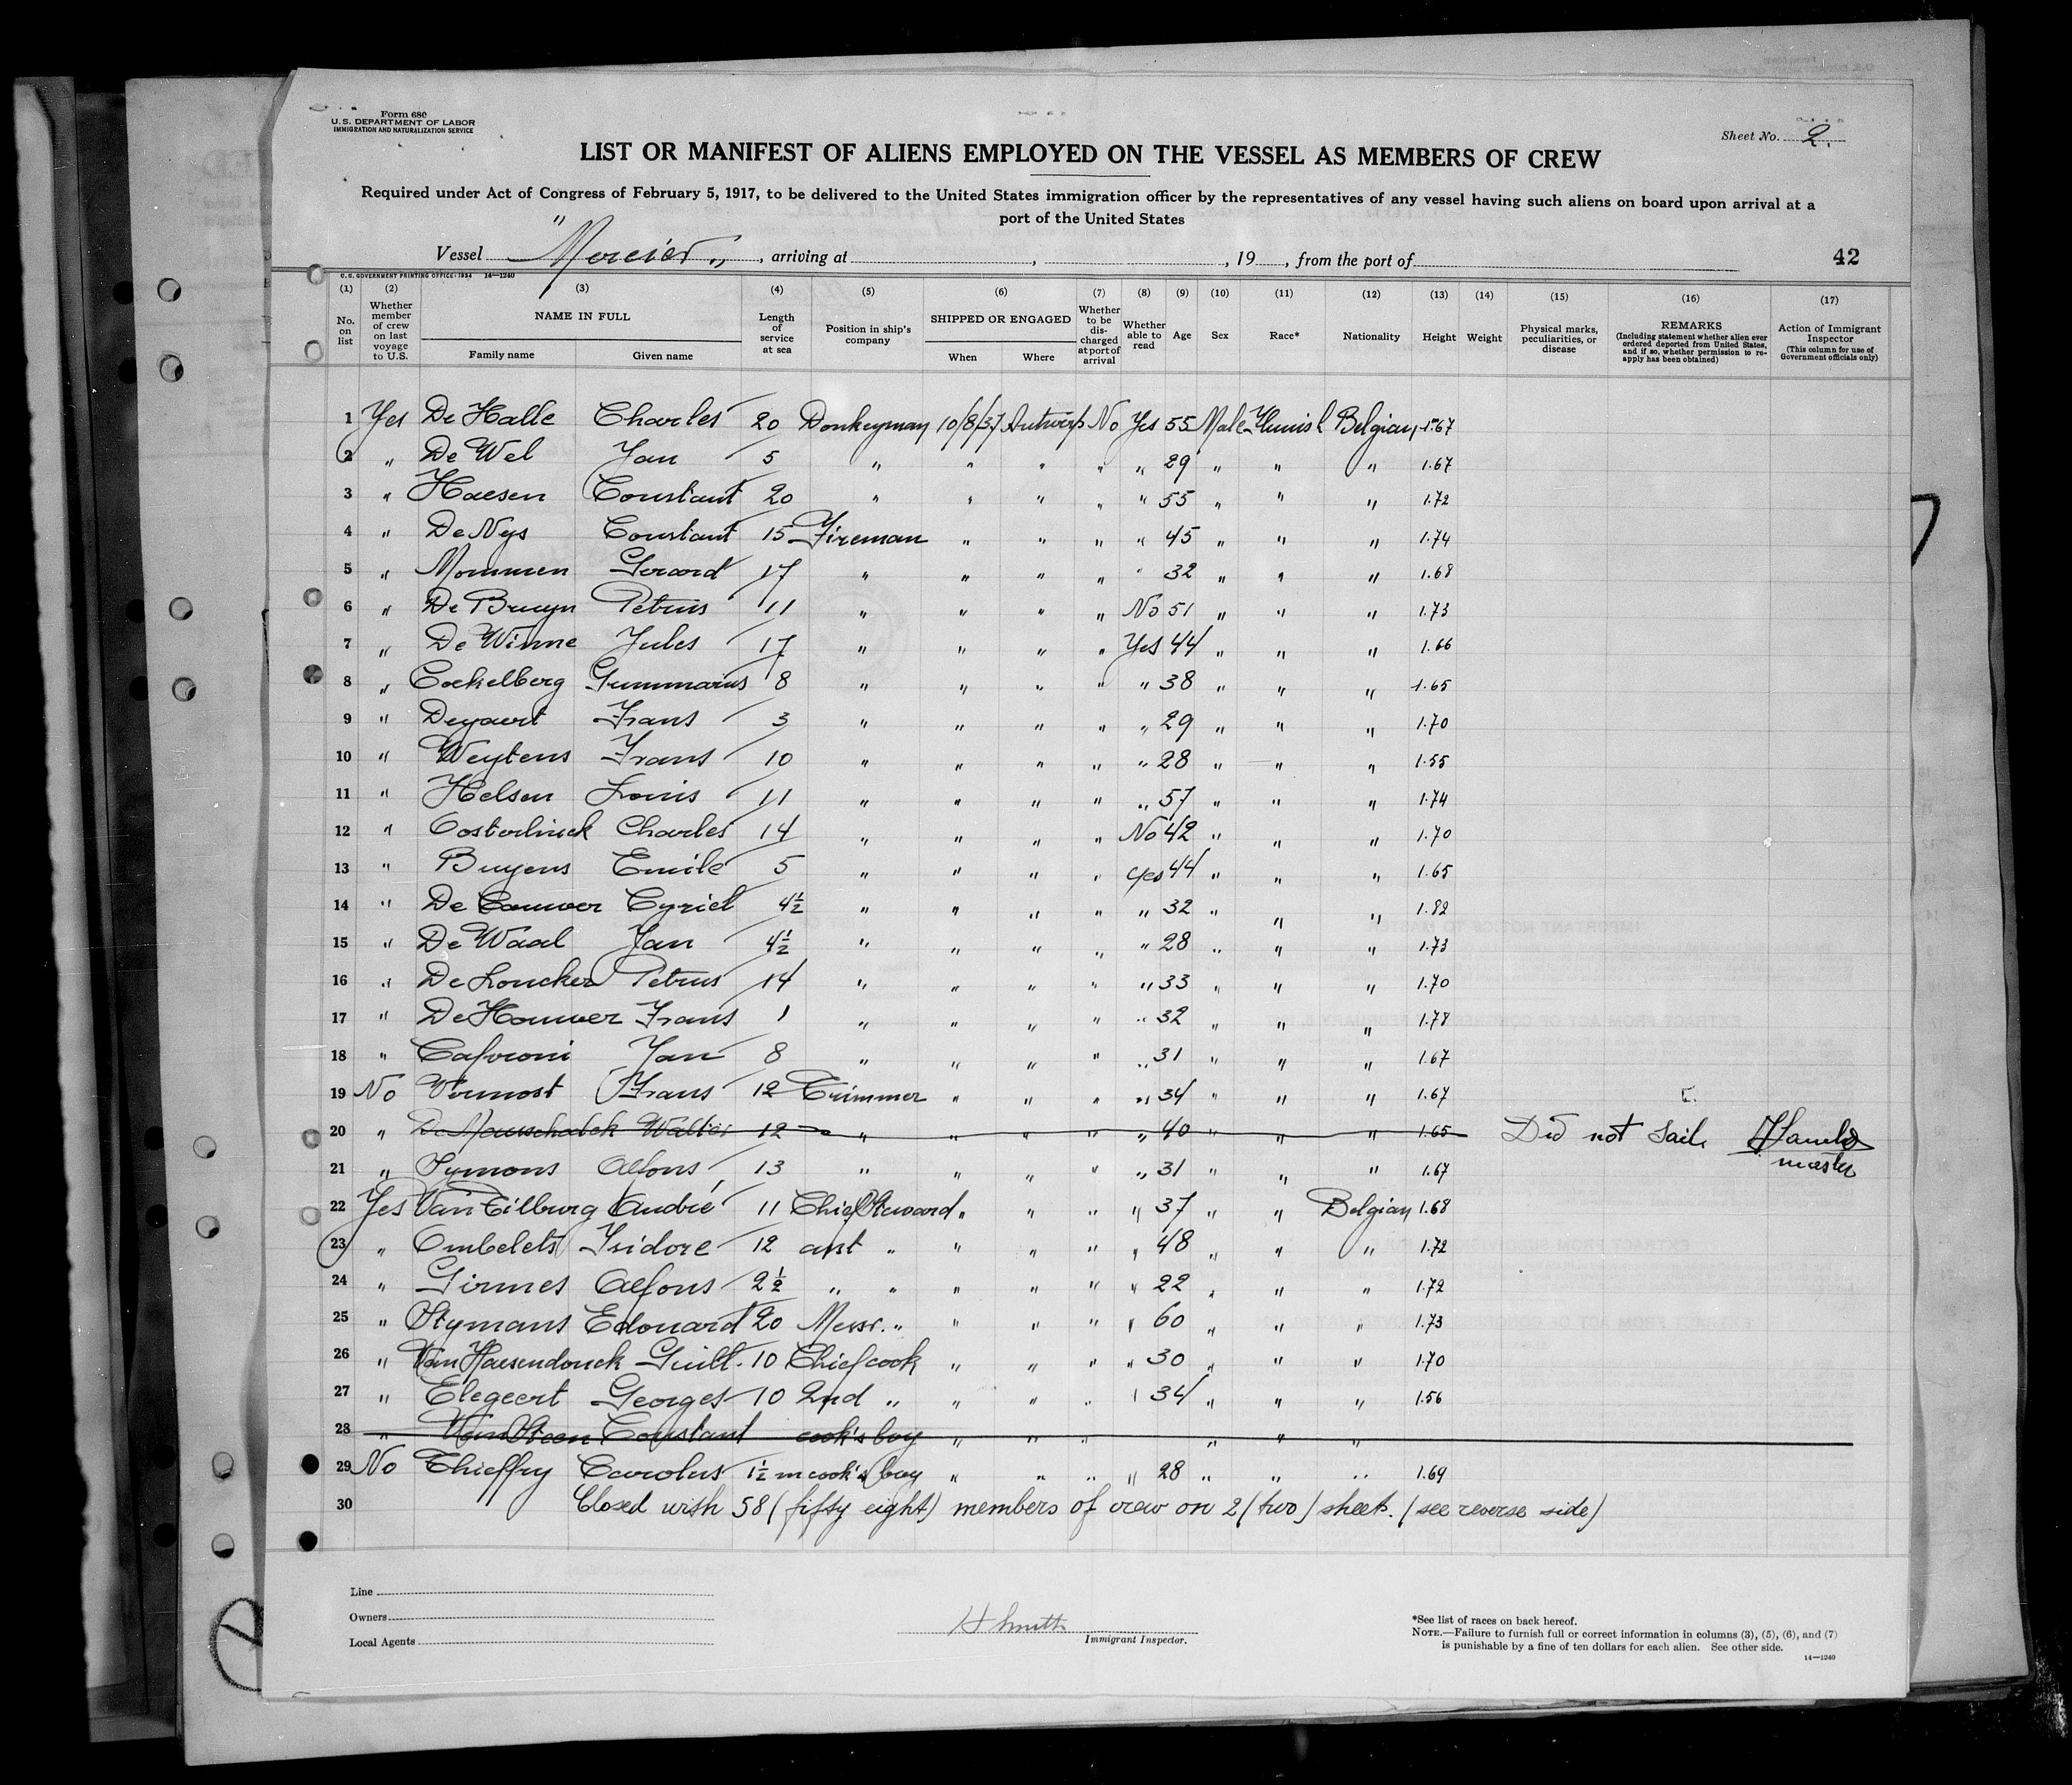 Form 680
U.S. DEPARTMENT OF LABOR
IMMIGRATION AND NATURALIZATION SERVICE
Sheet No. 2.
LIST OR MANIFEST OF ALIENS EMPLOYED ON THE VESSEL AS MEMBERS OF CREW
Required under Act of Congress of February 5, 1917, to be delivered to the United States immigration officer by the representatives of any vessel having such aliens on board upon arrival at a
port of the United States
Vessel "Mercier", arriving at , , 19 , from the port of 42
U.S. GOVERNMENT PRINTING OFFICE: 1934 14—1240
(1) No. on list
(2) Whether member of crew on last voyage to U.S.
(3) NAME IN FULL Family name Given name
(4) Length of service at sea
(5) Position in ship's company
(6) SHIPPED OR ENGAGED When Where
(7) Whether to be discharged at port of arrival
(8) Whether able to read
(9) Age
(10) Sex
(11) Race*
(12) Nationality
(13) Height
(14) Weight
(15) Physical marks, peculiarities, or disease
(16) REMARKS (Including statement whether alien ever ordered deported from United States, and if so, whether permission to reapply has been obtained)
(17) Action of Immigrant Inspector (This column for use of Government officials only)
1 Yes De Halle Charles 20 Donkeyman 10/8/37 Antwerp No Yes 55 Male Flemish Belgian 1.67
2 " De Wel Jan 5 " " " " " 29 " " " 1.67
3 " Haesen Constant 20 " " " " " 55 " " " 1.72
4 " De Nys Constant 15 Fireman " " " " 45 " " " 1.74
5 " Mommen Gerard 17 " " " " " 32 " " " 1.68
6 " De Bruyn Petrus 11 " " " " No 51 " " " 1.73
7 " De Winne Jules 17 " " " " Yes 44 " " " 1.66
8 " Cockelberg Gummarus 8 " " " " " 38 " " " 1.65
9 " Deyaert Frans 3 " " " " " 29 " " " 1.70
10 " Weytens Frans 10 " " " " " 28 " " " 1.55
11 " Helsen Louis 11 " " " " " 57 " " " 1.74
12 " Oosterlinck Charles 14 " " " " No 42 " " " 1.70
13 " Buyens Emile 5 " " " " Yes 44 " " " 1.65
14 " De Couwer Cyriel 4½ " " " " " 32 " " " 1.82
15 " De Waal Jan 4½ " " " " " 28 " " " 1.73
16 " De Loncker Petrus 14 " " " " " 33 " " " 1.70
17 " De Houwer Frans 1 " " " " " 32 " " " 1.78
18 " Cafroni Jan 8 " " " " " 31 " " " 1.67
19 No Vermost Frans 12 Trimmer " " " " 34 " " " 1.67
20 " Walter 12 " " " " " 40 " " " 1.65 Did not sail. master
21 " Symons Alfons 13 " " " " " 31 " " " 1.67
22 Yes Van Tilburg André 11 Chief Steward " " " " 37 " " Belgian 1.68
23 " Ombelets Isidore 12 asst " " " " " 48 " " " 1.72
24 " Girmes Alfons 2½ " " " " " " 22 " " " 1.72
25 " Stymans Edouard 20 Messr. " " " " " 60 " " " 1.73
26 " Van Haesendonck Guill. 10 Chief cook " " " " 30 " " " 1.70
27 " Elegeert Georges 10 2nd " " " " " 34 " " " 1.56
28 " Van Steen Constant cook's boy " " " " " "
29 No Thieffry Carolus 1½ m cook's boy " " " " 28 " " " 1.69
30 Closed with 58 (fifty eight) members of crew on 2 (two) sheets. (see reverse side)
Line
Owners
Local Agents
H Smith
Immigrant Inspector.
*See list of races on back hereof.
NOTE.—Failure to furnish full or correct information in columns (3), (5), (6), and (7)
is punishable by a fine of ten dollars for each alien. See other side.
14—1240